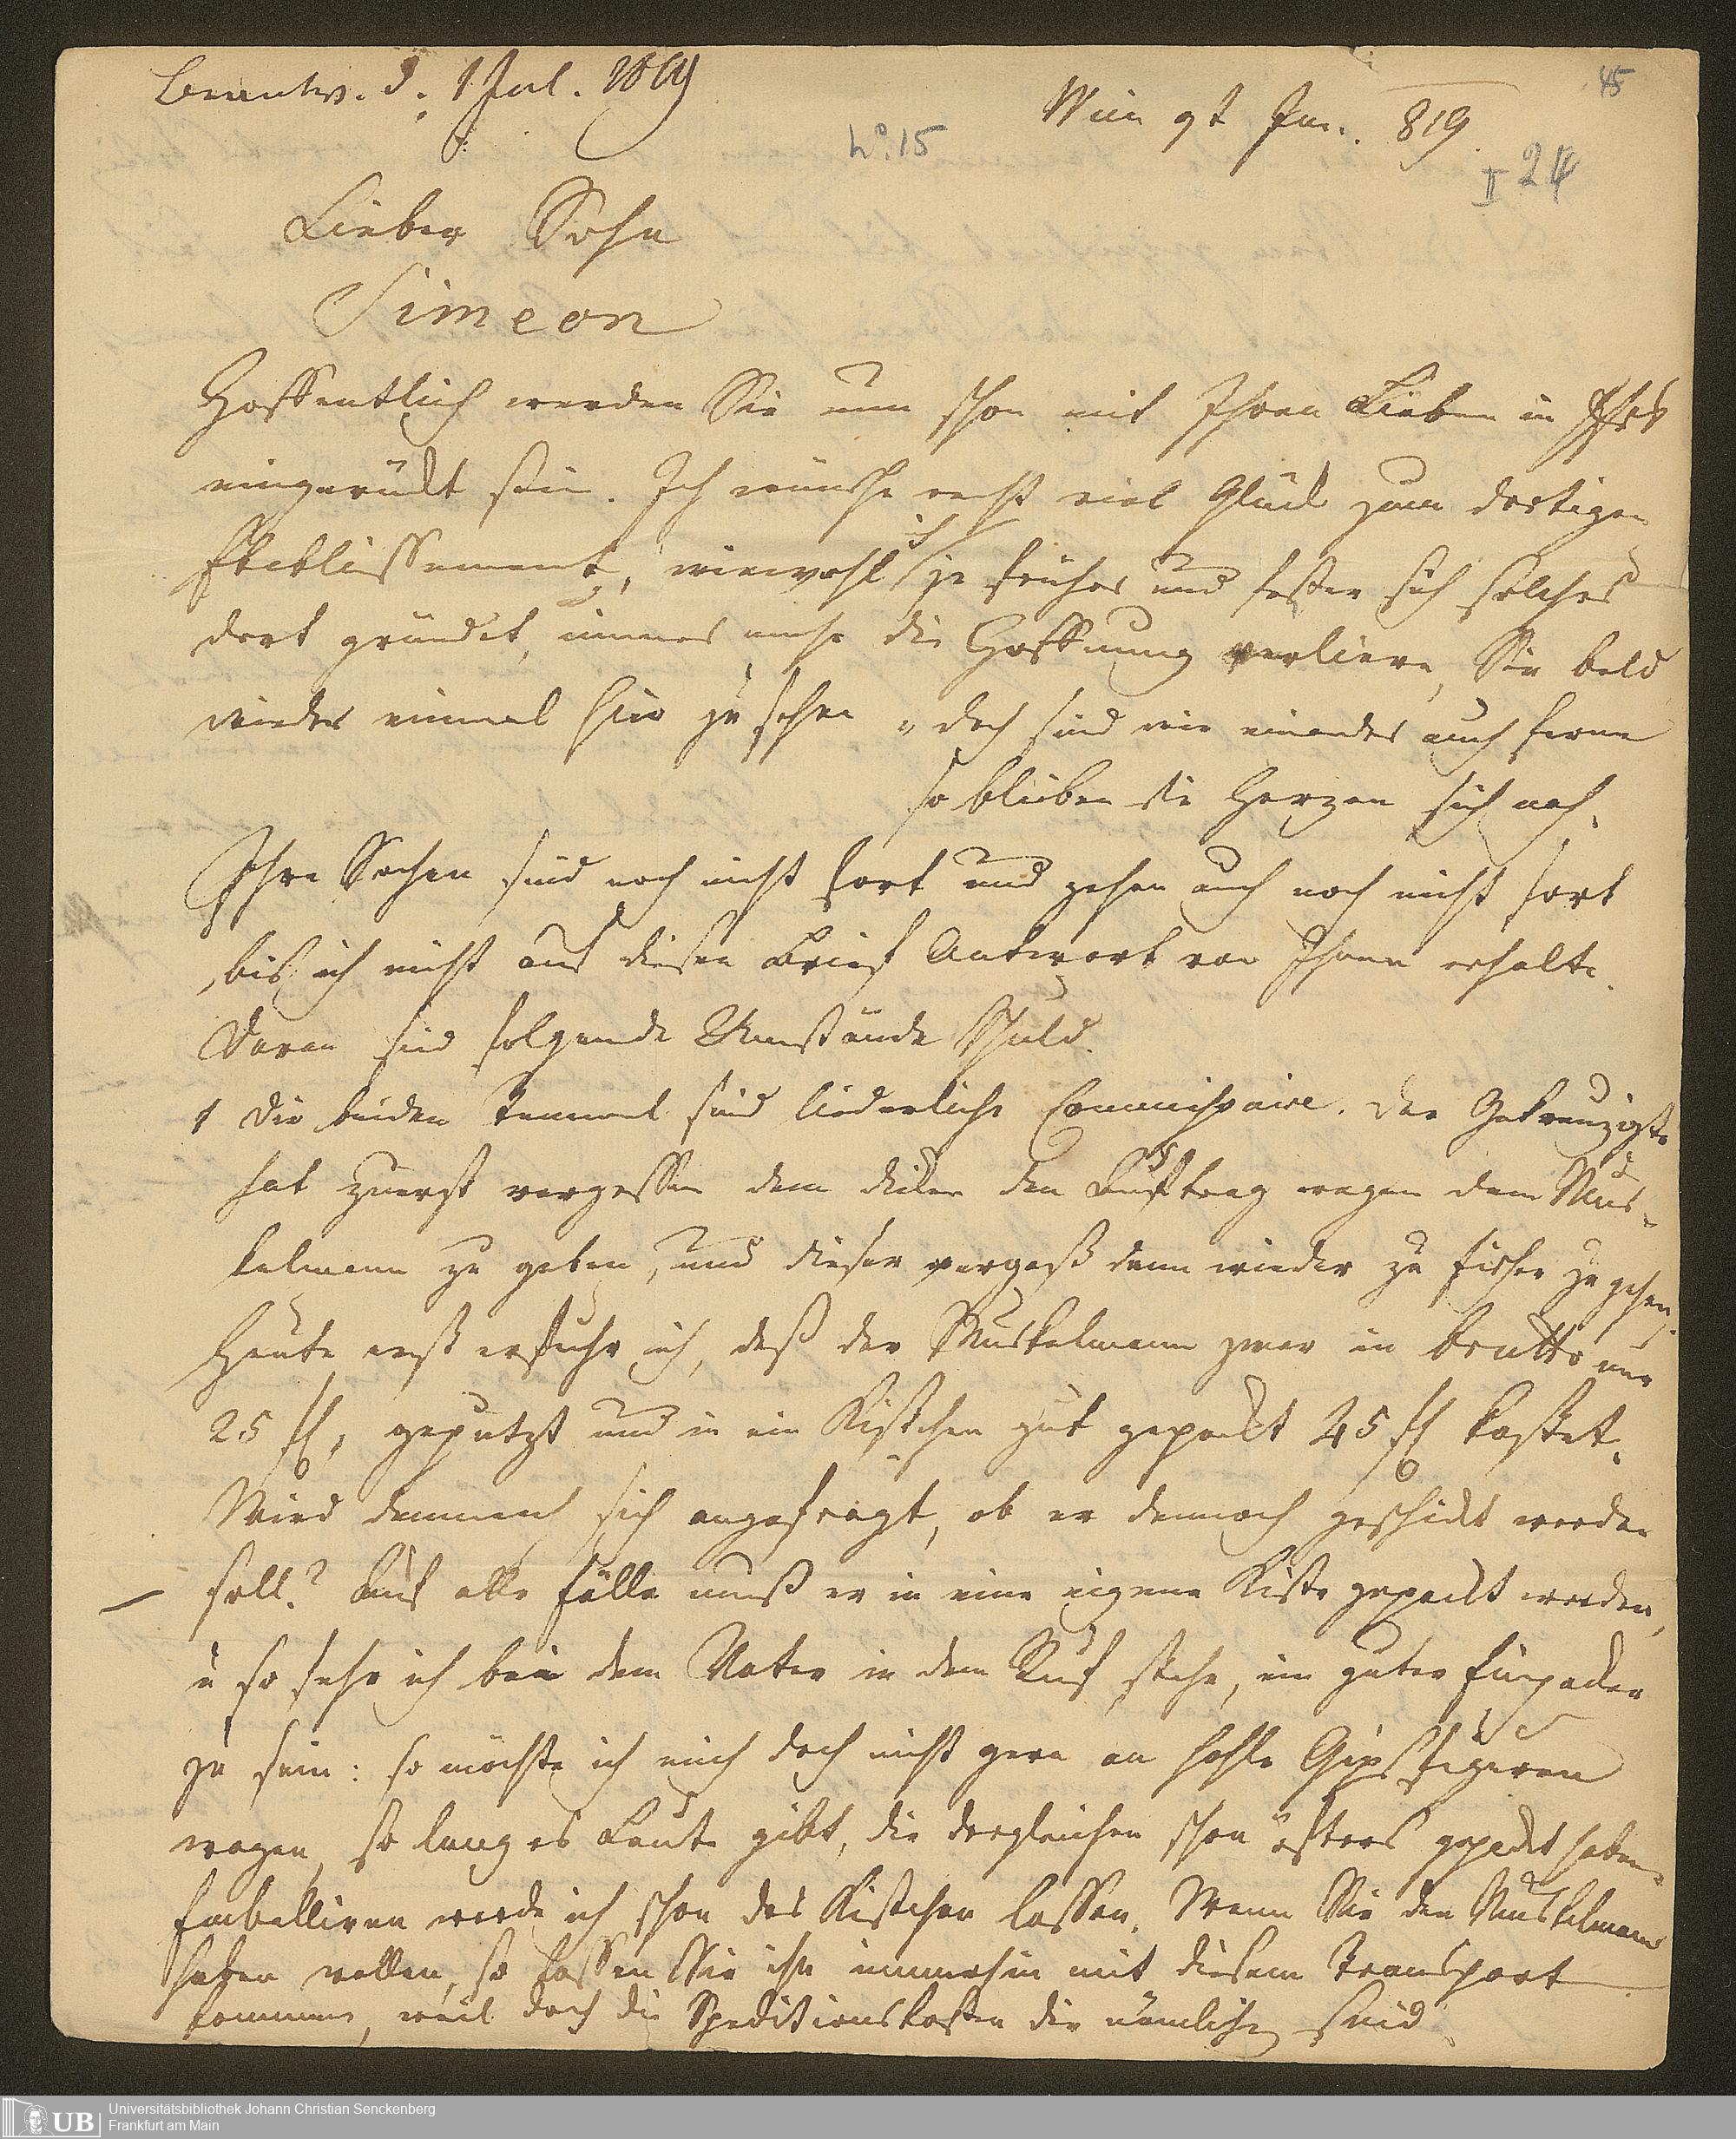 Beantw. d. 1 Jul. 1819
Wien 9t Jun. 819.
45
No. 15
II 24
Lieber Sohn
Simeon
Hoffentlich werden Sie nun schon mit Ihren Lieben in
eingerückt sein. Ich wünsche recht viel Glück zum dortigen
Etablissement, wiewohl ich je früher und fester sich solches
dort gründet, immer mehr die Hoffnung verliere, Sie bald
wieder einmal hier zu sehen „doch sind wir einander auch ferne
so bleiben die Herzen sich nah.
Ihre Sachen sind noch nicht fort und gehen auch noch nicht fort
, bis ich nicht auf diesen Brief Antwort von Ihnen erhalte.
Daran sind folgende Umstände Schuld.
1 Die beiden sind liederliche Commissaire. Der Gekreuzigte
hat zuerst vergessen dem den Auftrag wegen dem Mus-
kelmann zu geben, und dieser vergaß dann wieder zu Fischer zu gehen.
Heute erst erfuhr ich, daß der Muskelmann zwar in brutto nur
25 fl, geputzt und in ein Kistchen gut gepackt 45 fl kostet.
Wird demnach sich angefragt, ob er dennoch geschickt werden
soll? Auf alle Fälle muß er in eine eigene Kiste gepackt werden,
u so sehr ich bei dem Vater in dem Ruf stehe, ein guter Einpacker
zu sein: so möchte ich mich doch nicht gern an hohle Gipsfiguren
wagen, so lang es Leute gibt, die dergleichen schon öfters gepackt haben.
Emballiren werde ich schon das Kistchen lassen. Wenn Sie den Muskelmann
haben wollen, so lassen Sie ihn immerhin mit diesem Transport
kommen, weil doch die Speditionskosten die nämlichen sind.
UB
Universitätsbibliothek Johann Christian Senckenberg
Frankfurt am Main